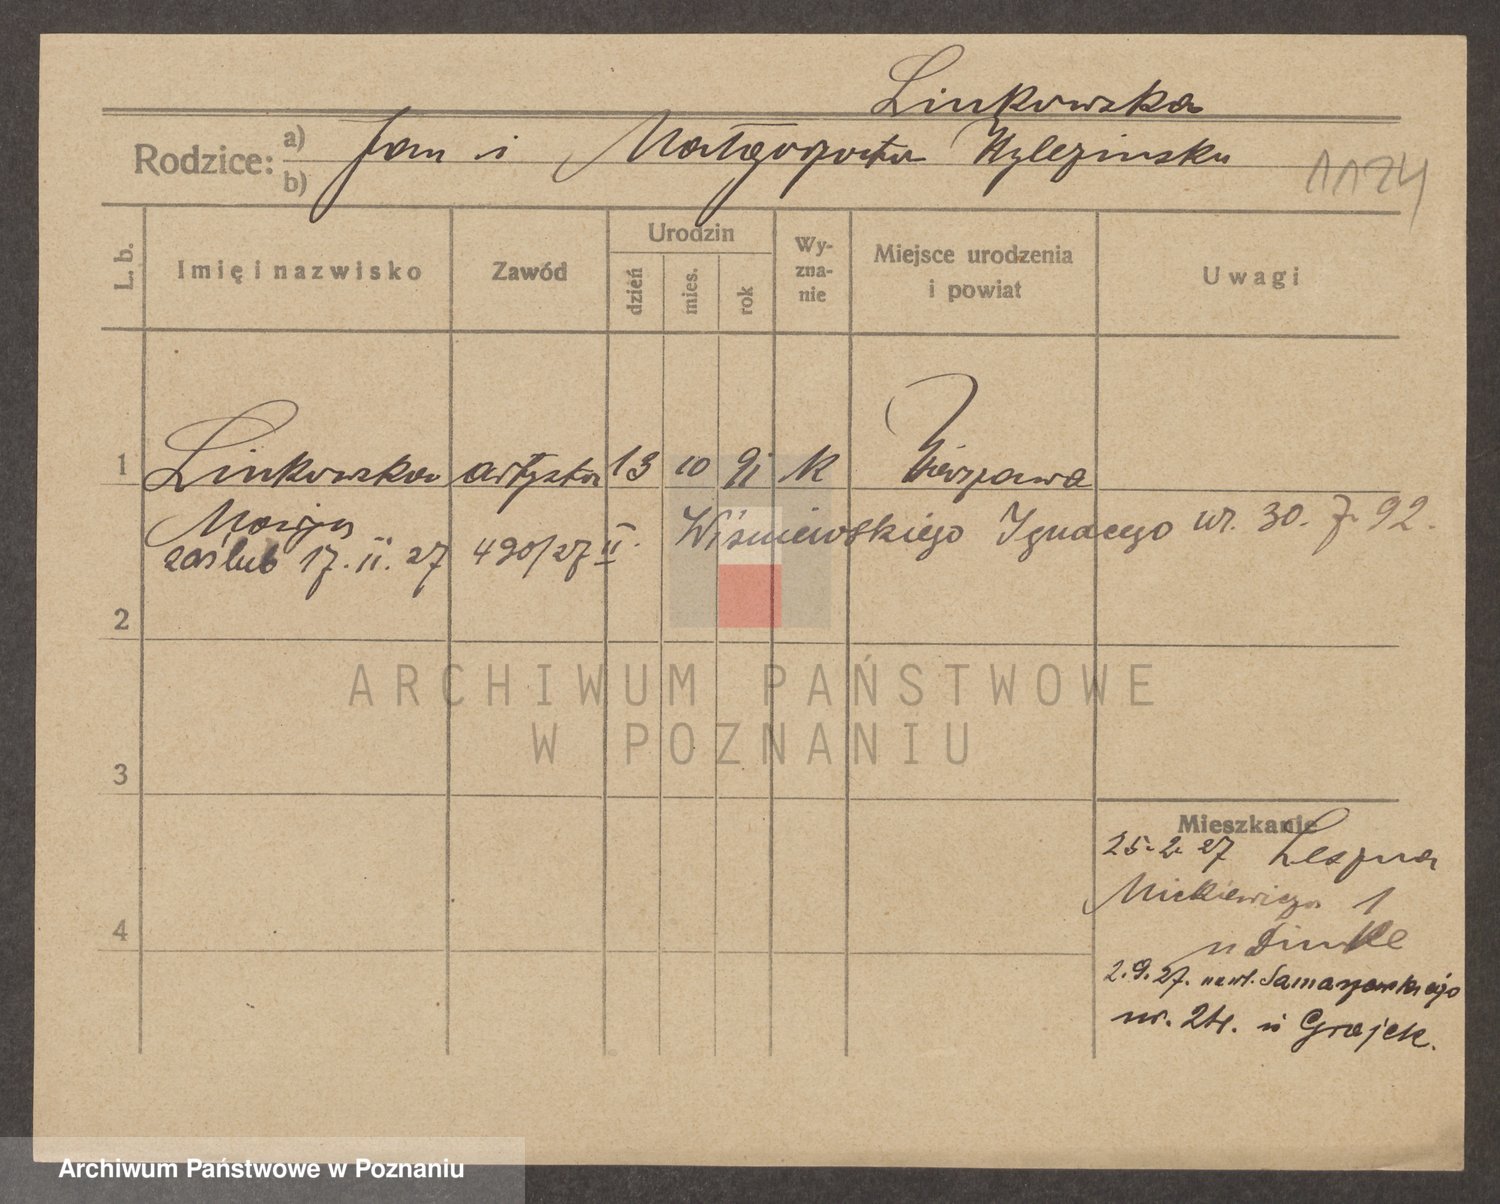 Linkowska
Rodzice: a) Jan i Małgorzata
b)
1124
L. b.
Imię i nazwisko
Zawód
Urodzin
dzień
mies.
rok
Wy-
zna-
nie
Miejsce urodzenia
i powiat
Uwagi
1 Linkowska artystka 13 10 91 k Warszawa
Marja
zaślub 17. II. 27 490/27 II. Wiśniewskiego Ignacego ur. 30. 7. 92.
2
3
4
ARCHIWUM PAŃSTWOWE
W POZNANIU
Mieszkanie
25.2.27 Leszna
Mickiewicza 1
u
2.9.27. Samarzewskiego
nr. 24. u Grajek.
Archiwum Państwowe w Poznaniu